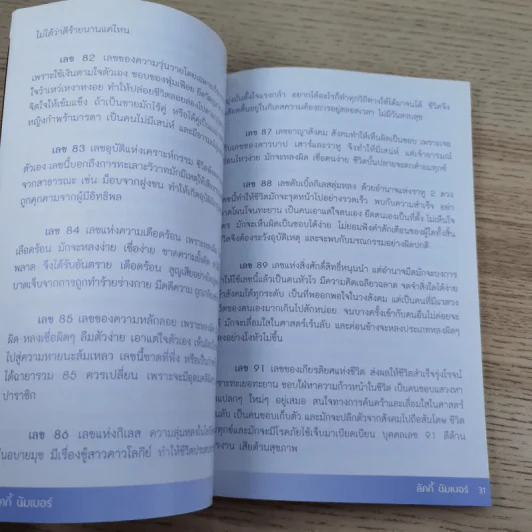 ไม่ได้ว่าดีร้ายนานแค่ไหน
เลข 82 เลขของความวุ่นวายโดยเฉพาะ
เพราะใช้เงินตามใจตัวเอง ชอบของฟุ่มเฟือย
ใจว้าเหว่เหงาหงอย ทำให้ปล่อยชีวิตลอยล่องไป
จิตใจให้เข้มแข็ง ถ้าเป็นชายมักไร้คู่ หรือได้คู่
หญิงกำพร้ามารดา เป็นคนไม่มีเสน่ห์ และมี
เลข 83 เลขอุบัติแห่งเคราะห์กรรม ชีวิต
ตัวเอง เลขนี้บอกถึงการทะเลาะวิวาทมักมีเหตุให้
จากสาธารณะ เช่น ม็อบจากฝูงชน ทำให้เกิดอุบัติเหตุ
ถูกคุดตามจากผู้มีอิทธิพล
เลข 84 เลขแห่งความเดือดร้อน เพราะ
เลือดร้อน มักจะหลงง่าย เชื่อง่าย ขาดความยั้งคิด
พลาด จึงได้รับอันตราย เดือดร้อน สูญเสียอย่าง
บาดเจ็บจากการถูกทำร้ายร่างกาย มีคดีความ
เลข 85 เลขของความหลักลอย เพราะ
ผิด หลงเชื่อผิดๆ ลืมตัวง่าย เอาแต่ใจตัวเอง เห็น
ไปสู่ความหายนะล้มเหลว เลขนี้ขาดที่พึ่ง หรือเป็น
ได้ฉายารวม 85 ควรเปลี่ยน เพราะจะมีอุดม
ปาราชิก
เลข 86 เลขแห่งกิเลส ความลุ่มหลงในโลกีย์
อบายมุข มีเรื่องชู้สาวคาวโลกีย์ ทำให้ชีวิตประสบ
ลัคกี้ นัมเบอร์
อยากได้อะไรก็ทำทุกวิถีทางให้ได้มาจนได้ ชีวิตจึง
ติดอยู่ในกิเลสความต้องการอยู่ตลอดเวลา ไม่มีวันสงบสุข
เลข 87 เลขอาญาสังคม สังคมทำให้เห็นผิดเป็นชอบ เพราะเจอ
ของดาวบาป เสาร์และราหู จึงทำให้มีเสน่ห์ แต่เจ้าอารมณ์
หวง่าย มักจะหลงผิด เชื่อคนง่าย ชีวิตบั้นปลายจะตกต่ำและทุกข์
เลข 88 เลขดับเบิ้ลกิเลสลุ่มหลง ด้วยอำนาจแห่งราหู 2 ดวง
นี้ทำให้ชีวิตมักจะรุดหน้าไปอย่างรวดเร็ว พบกับความสำเร็จ อย่า
โมโนโจนทะยาน เป็นคนเอาแต่ใจตนเอง ยึดตนเองเป็นที่ตั้ง ไม่เห็นใจ
มักจะเห็นผิดเป็นชอบได้ง่าย ไม่ยอมฟังคำตักเตือนของผู้ใดทั้งสิ้น
จึงต้องระวังอุบัติเหตุ และจะพบกับมรณกรรมอย่างผิดปกติ
เลข 89 เลขแห่งสิ่งศักดิ์สิทธิ์หนุนนำ แต่อำนาจมืดมักจะบงการ
ให้ใช้เลขนี้แล้วเป็นคนหัวไว มีความคิดเฉลียวฉลาด จดจำสิ่งใดได้ง่าย
สังคมได้ทุกระดับ เป็นที่พออกพอใจในวงสังคม แต่เป็นคนที่มีแรงดวง
ของตนเองมากเกินไปสักหน่อย จนบางครั้งเข้ากับคนอื่นไม่ค่อยจะ
มักจะเลื่อมใสในศาสตร์เร้นลับ และค่อนข้างจะหลงประเภทหลงผิดๆ
อย่างมั่วหัวไม่ขึ้น
เลข 91 เลขของเกียรติยศแห่งชีวิต ส่งผลให้ชีวิตสำเร็จรุ่งโรจน์
เพราะทะเยอทะยาน ชอบใฝ่หาความก้าวหน้าในชีวิต เป็นคนชอบแสวงหา
แปลกๆ ใหม่ๆ อยู่เสมอ สนใจทางการค้นคว้าและเลื่อมใสในศาสตร์
ลับ เป็นคนชอบเก็บตัว และมักจะปลีกตัวจากสังคมไปถือสันโดษ ชีวิต
ทุกข์และมักจะมีโรคภัยไข้เจ็บมาเบียดเบียน บุคคลเลข 91 ดีด้าน
งาน เสียด้านสุขภาพ
ลัคกี้ นัมเบอร์ 31